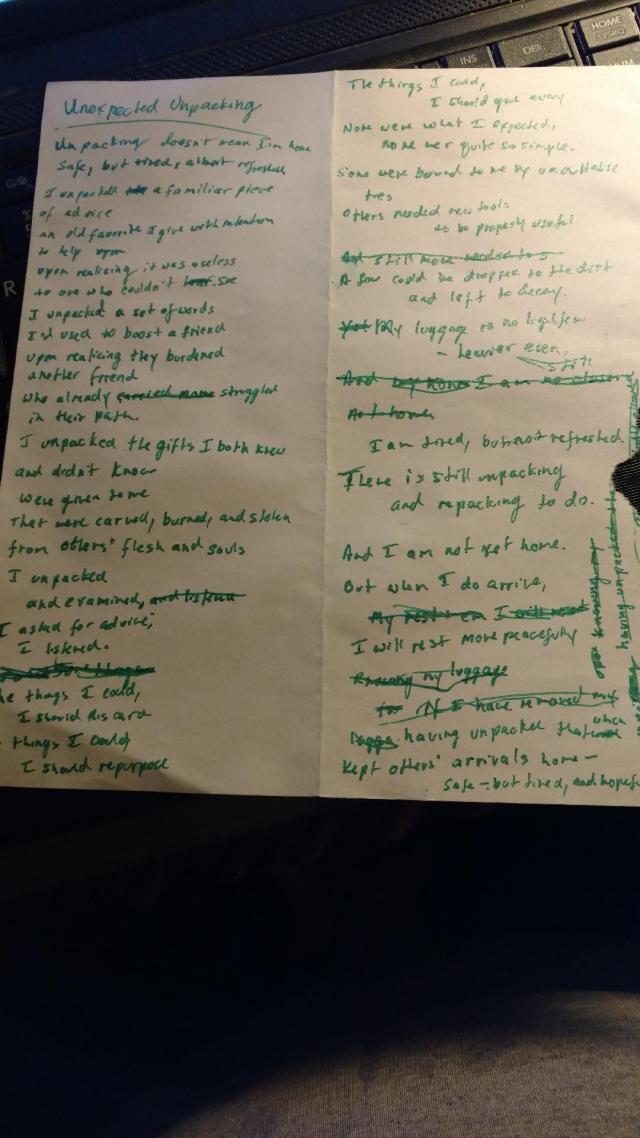 Unexpected Unpacking
Unpacking doesn't mean I'm home
Safe, but tired, albeit refreshed
I unpacked a familiar piece
of advice
an old favorite I give with intention
to help upon
upon realizing it was useless
to one who couldn't hear. see
I unpacked a set of words
I'd used to boost a friend
upon realizing they burdened
another friend
who already carried more struggled
in their path.
I unpacked the gifts I both knew
and didn't know
were given to me
That were carved, burned, and stolen
from others' flesh and souls
I unpacked
and examined, and listened
I asked for advice;
I listened.
he things I could,
I should discard
things I could,
I should repurpose
The things I could,
I should give away
None were what I expected,
none wer quite so simple.
Some were bound to me by unsuitable
ties
Others needed new tools
to be properly useful
And still more needed to
A few could be dropped to the dirt
and left to decay.
Yet My luggage is no lighter
- heavier even,
still
And my home I am no closer
Not home.
I am tired, but not refreshed
There is still unpacking
and repacking to do.
And I am not yet home.
But when I do arrive,
My rest I will rest
I will rest more peacefully
Knowing my luggage
for If I have removed my
having unpacked that which
Kept others' arrivals home -
Safe - but tired, and hopef
upon knowing my
having unpacked
INS
DEL
HOME
SYSRQ
R